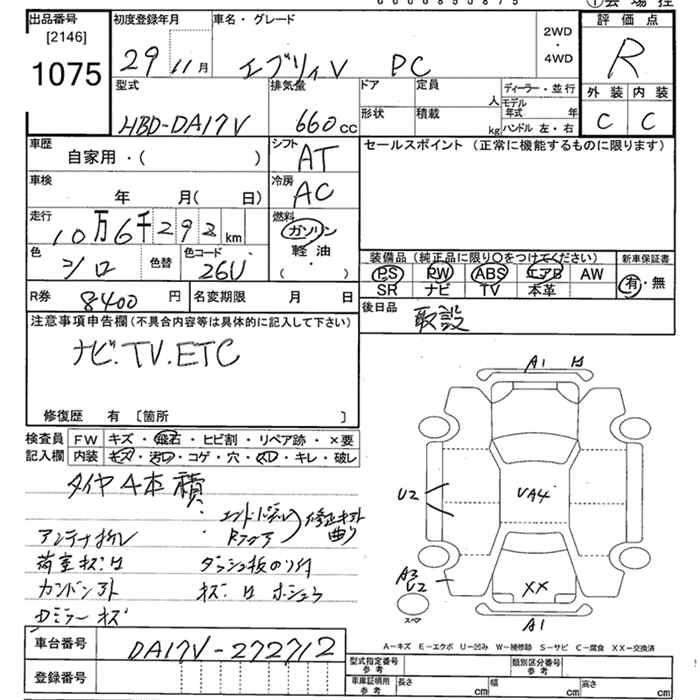 出品番号 初度登録年月 車名・グレード 評価点
[2146]
1075
29 11月 エブリィV PC
2WD
・
4WD
R
型式 排気量 ドア 定員 人 ディーラー・並行 外装 内装
HBD-DA17V 660cc
形状 積載 kg モデル年式 年
ハンドル 左・右
C C
車歴 シフト セールスポイント(正常に機能するものに限ります)
自家用・( ) AT
車検 冷房
年 月( 日) AC
走行 燃料
10万6千292km ガソリン
軽油
・
( )
色 色替 色コード
シロ 26U
装備品(純正品に限り○をつけてください) 新車保証書
PS PW ABS エアB AW
SR ナビ TV 本革
有・無
R券 8400 円 名変期限 月 日
後日品 取説
注意事項申告欄(不具合内容等は具体的に記入して下さい)
ナビ.TV.ETC
修復歴 有 〔箇所 〕
検査員 FW キズ・飛石・ヒビ割・リペア跡・×要
記入欄 内装 キズ・汚れ・コゲ・穴・スレ・キレ・破レ
A1
U2
VA4
A3
U2
XX
スペア
A1
タイヤ4本積
アンテナ折レ
荷室キズ
ダッシュ板のり付
Dミラーキズ
車台番号 DA17V-272712
登録番号
A-キズ E-エクボ U-凹み W-補修跡 S-サビ C-腐食 XX-交換済
型式指定番号 参考 類別区分番号 参考
車庫証明用 参考 長さ cm 幅 cm 高さ cm